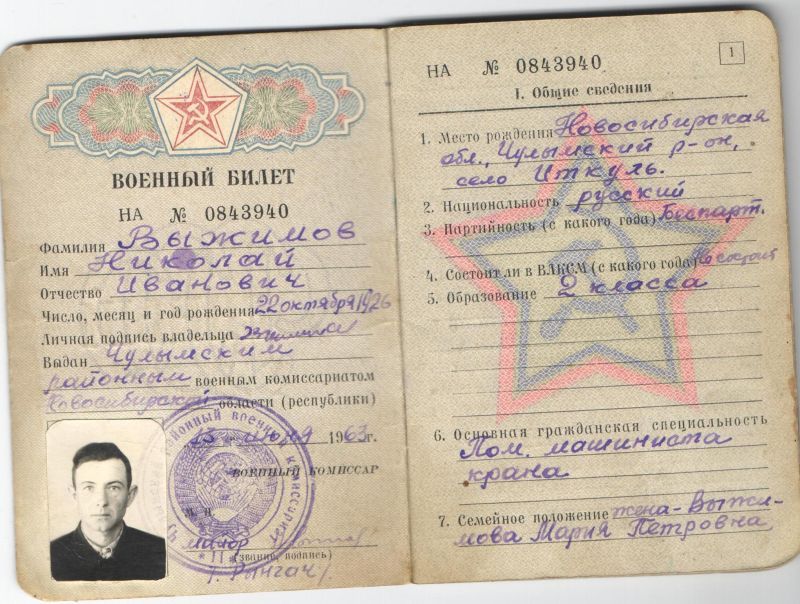 ВОЕННЫЙ БИЛЕТ
НА № 0843940
Фамилия Выжимов
Имя Николай
Отчество Иванович
Число, месяц и год рождения 22 октября 1926
Личная подпись владельца
Выдан Чулымским
районным военным комиссариатом
Новосибирской области (республики)
1963 г.
ВОЕННЫЙ КОМИССАР
М. П.
майор
(звание, подпись)
НА № 0843940
1
I. Общие сведения
1. Место рождения Новосибирская
обл., Чулымский р-он,
село Иткуль.
2. Национальность русский
3. Партийность (с какого года) Беспарт.
4. Состоит ли в ВЛКСМ (с какого года) Не состоит
5. Образование 2 класса
6. Основная гражданская специальность
Пом. машиниста
крана
7. Семейное положение жена - Выжи-
мова Мария Петровна